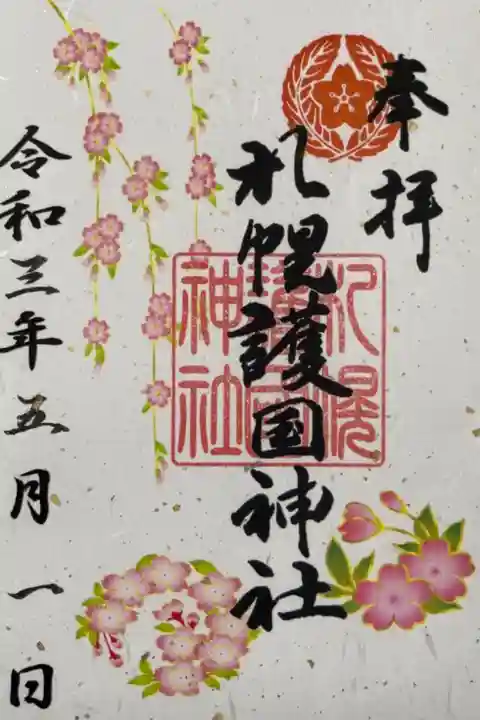 奉拝
札幌護国神社
札幌護国神社
令和三年五月一日